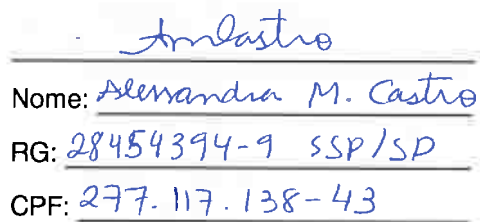 AmCastro
Nome: Alessandra M. Castro
RG: 28454394-9 SSP/SP
CPF: 277.117.138-43